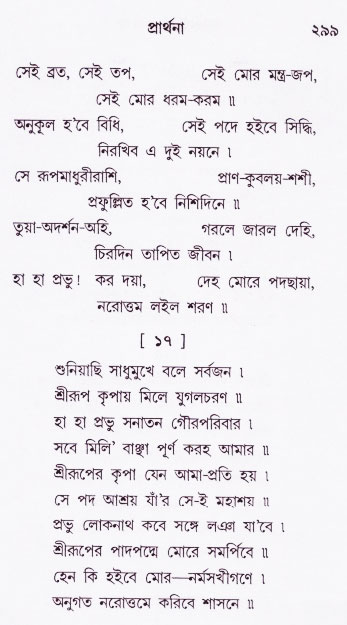 প্রার্থনা ২৯৯
সেই ব্রত, সেই তপ, সেই মোর মন্ত্র-জপ,
সেই মোর ধরম-করম ॥
অনুকুল হ'বে বিধি, সেই পদে হইবে সিদ্ধি,
নিরখিব এ দুই নয়নে ।
সে রূপমাধুরীরাশি, প্রাণ-কুবলয়-শশী,
প্রফুল্লিত হ'বে নিশিদিনে ॥
তুয়া-অদর্শন-অহি, গরলে জারল দেহি,
চিরদিন তাপিত জীবন ।
হা হা প্রভু! কর দয়া, দেহ মোরে পদছায়া,
নরোত্তম লইল শরণ ॥
[ ১৭ ]
শুনিয়াছি সাধুমুখে বলে সর্বজন ।
শ্রীরূপ কৃপায় মিলে যুগলচরণ ॥
হা হা প্রভু সনাতন গৌরপরিবার ।
সবে মিলি' বাঞ্ছা পূর্ণ করহ আমার ॥
শ্রীরূপের কৃপা যেন আমা-প্রতি হয় ।
সে পদ আশ্রয় যাঁ'র সে-ই মহাশয় ॥
প্রভু লোকনাথ কবে সঙ্গে লঞা যা'বে ।
শ্রীরূপের পাদপদ্মে মোরে সমর্পিবে ॥
হেন কি হইবে মোর—নর্মসখীগণে ।
অনুগত নরোত্তমে করিবে শাসনে ॥